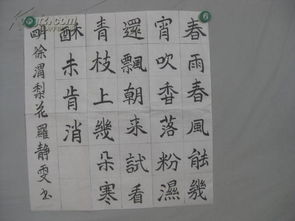 春雨春風能幾
宵吹香落粉濕
還飄朝來試看
青枝上幾朵寒
酥未肯消
明徐渭梨花羅靜雯書